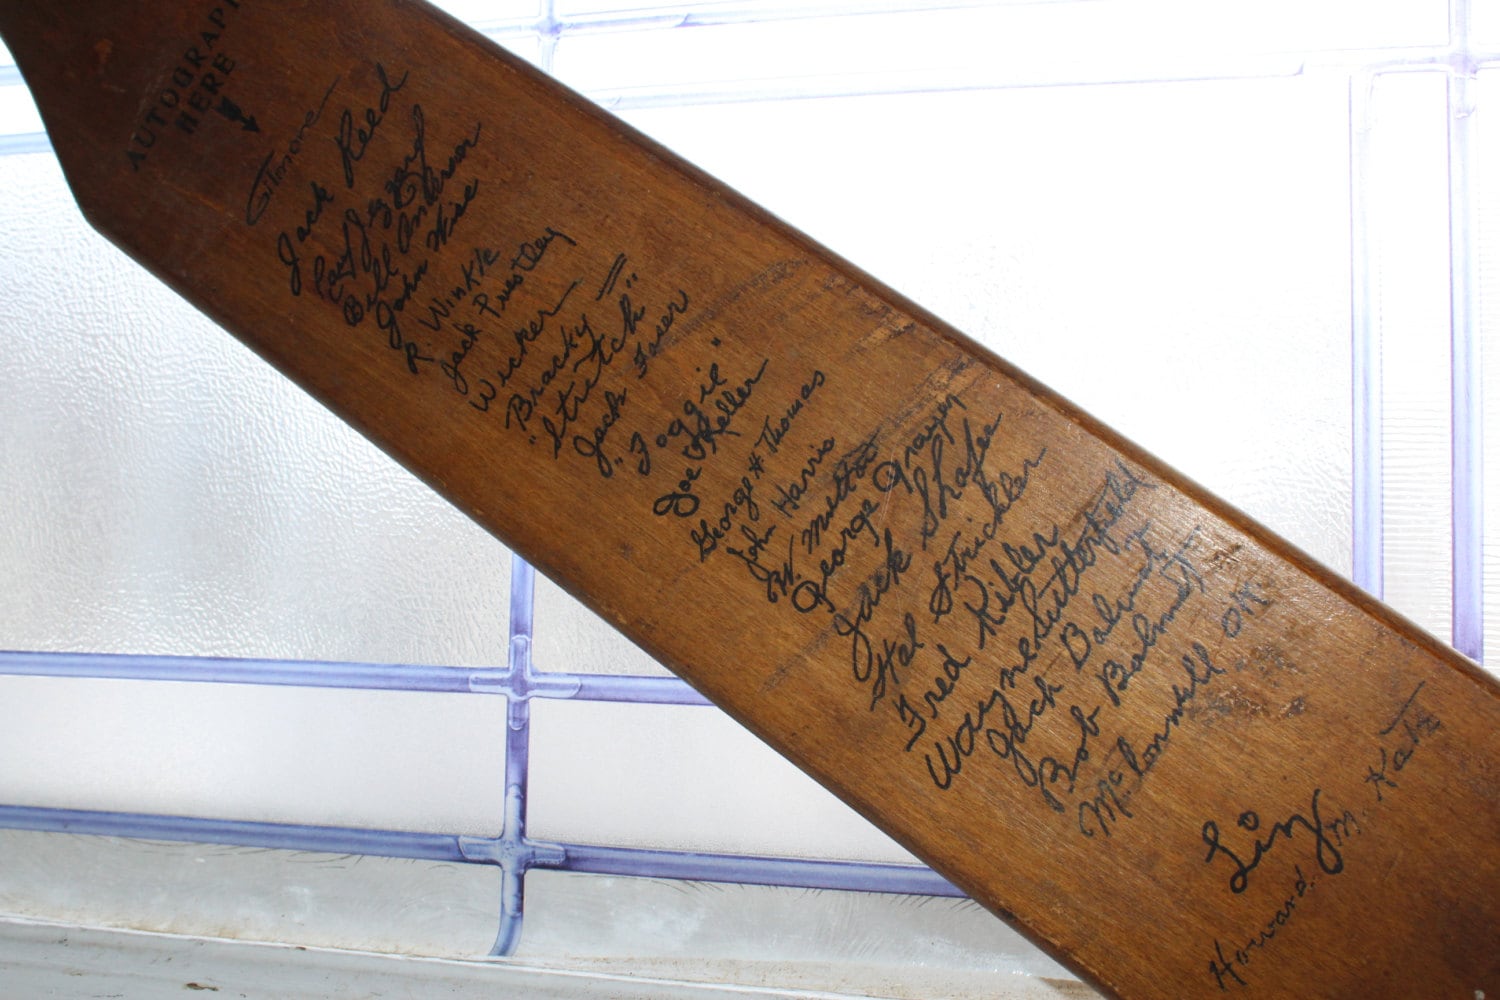 AUTOGRAPH
HERE
Gilmore
Jack Reed
Bill Anderson
John Wise
R. Winkle
Jack Priestley
Wicker
Bracky
"Stretch"
Jack Faser
"Foggie"
Joe Keller
George H Thomas
John Harris
W. Mutton
George Graven
Jack Shafer
Hal Strickler
Fred Kibler
Wayne Butterfield
Jack
Bob
McConnell OK
Liz
Howard M. Katz